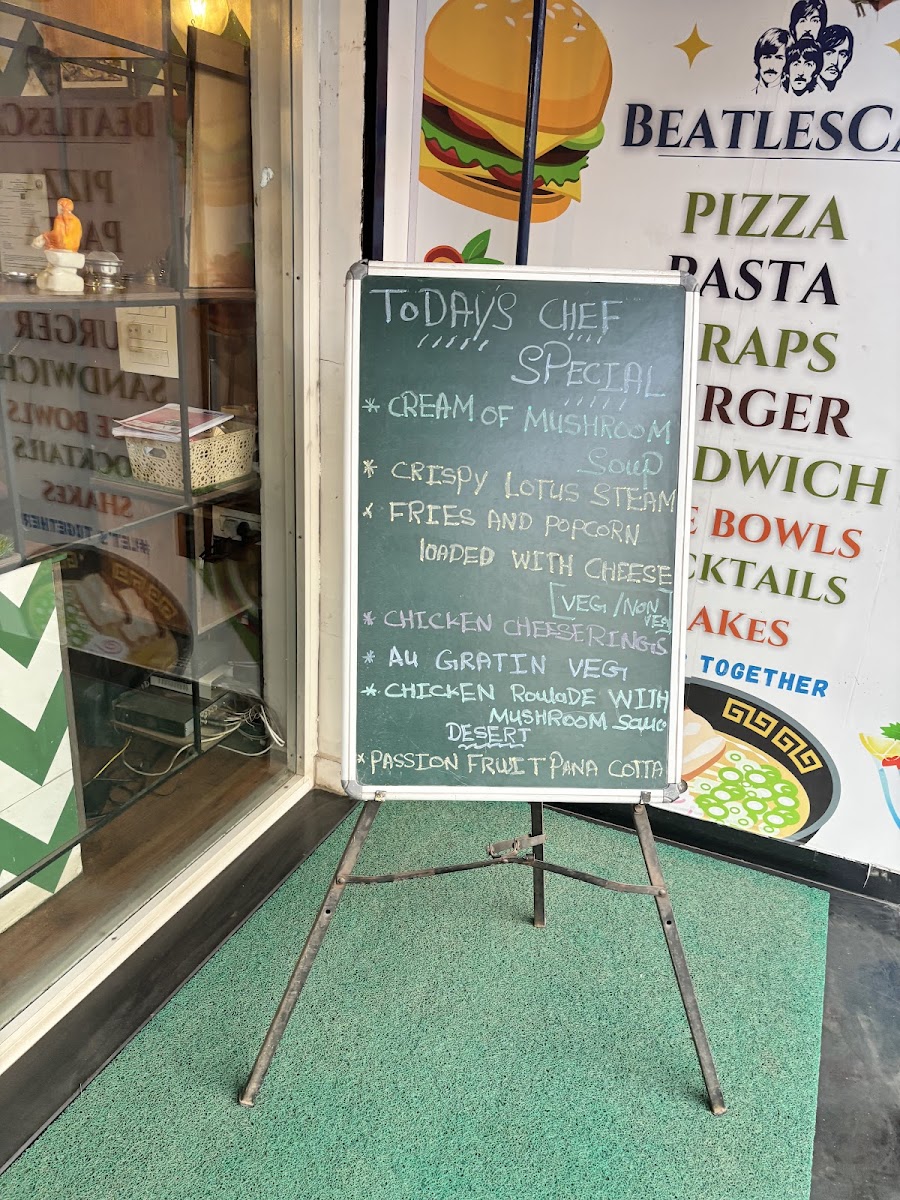 BEATLESCA
PIZZA
PASTA
RAPS
RGER
DWICH
E BOWLS
CKTAILS
AKES
TOGETHER
TODAY'S CHEF
SPECIAL
* CREAM OF MUSHROOM
SOUP
* CRISPY LOTUS STEAM
* FRIES AND POPCORN
LOADED WITH CHEESE
[VEG/NON
VEG]
* CHICKEN CHEESE RINGS
* AU GRATIN VEG
* CHICKEN ROULADE WITH
MUSHROOM SAUC
DESERT
* PASSION FRUIT PANA COTTA
BEATLESCA
PIZZ
PA
URGER
SANDWICH
E BOWLS
OCKTAILS
SHAKES
#LET'S TOGETHER